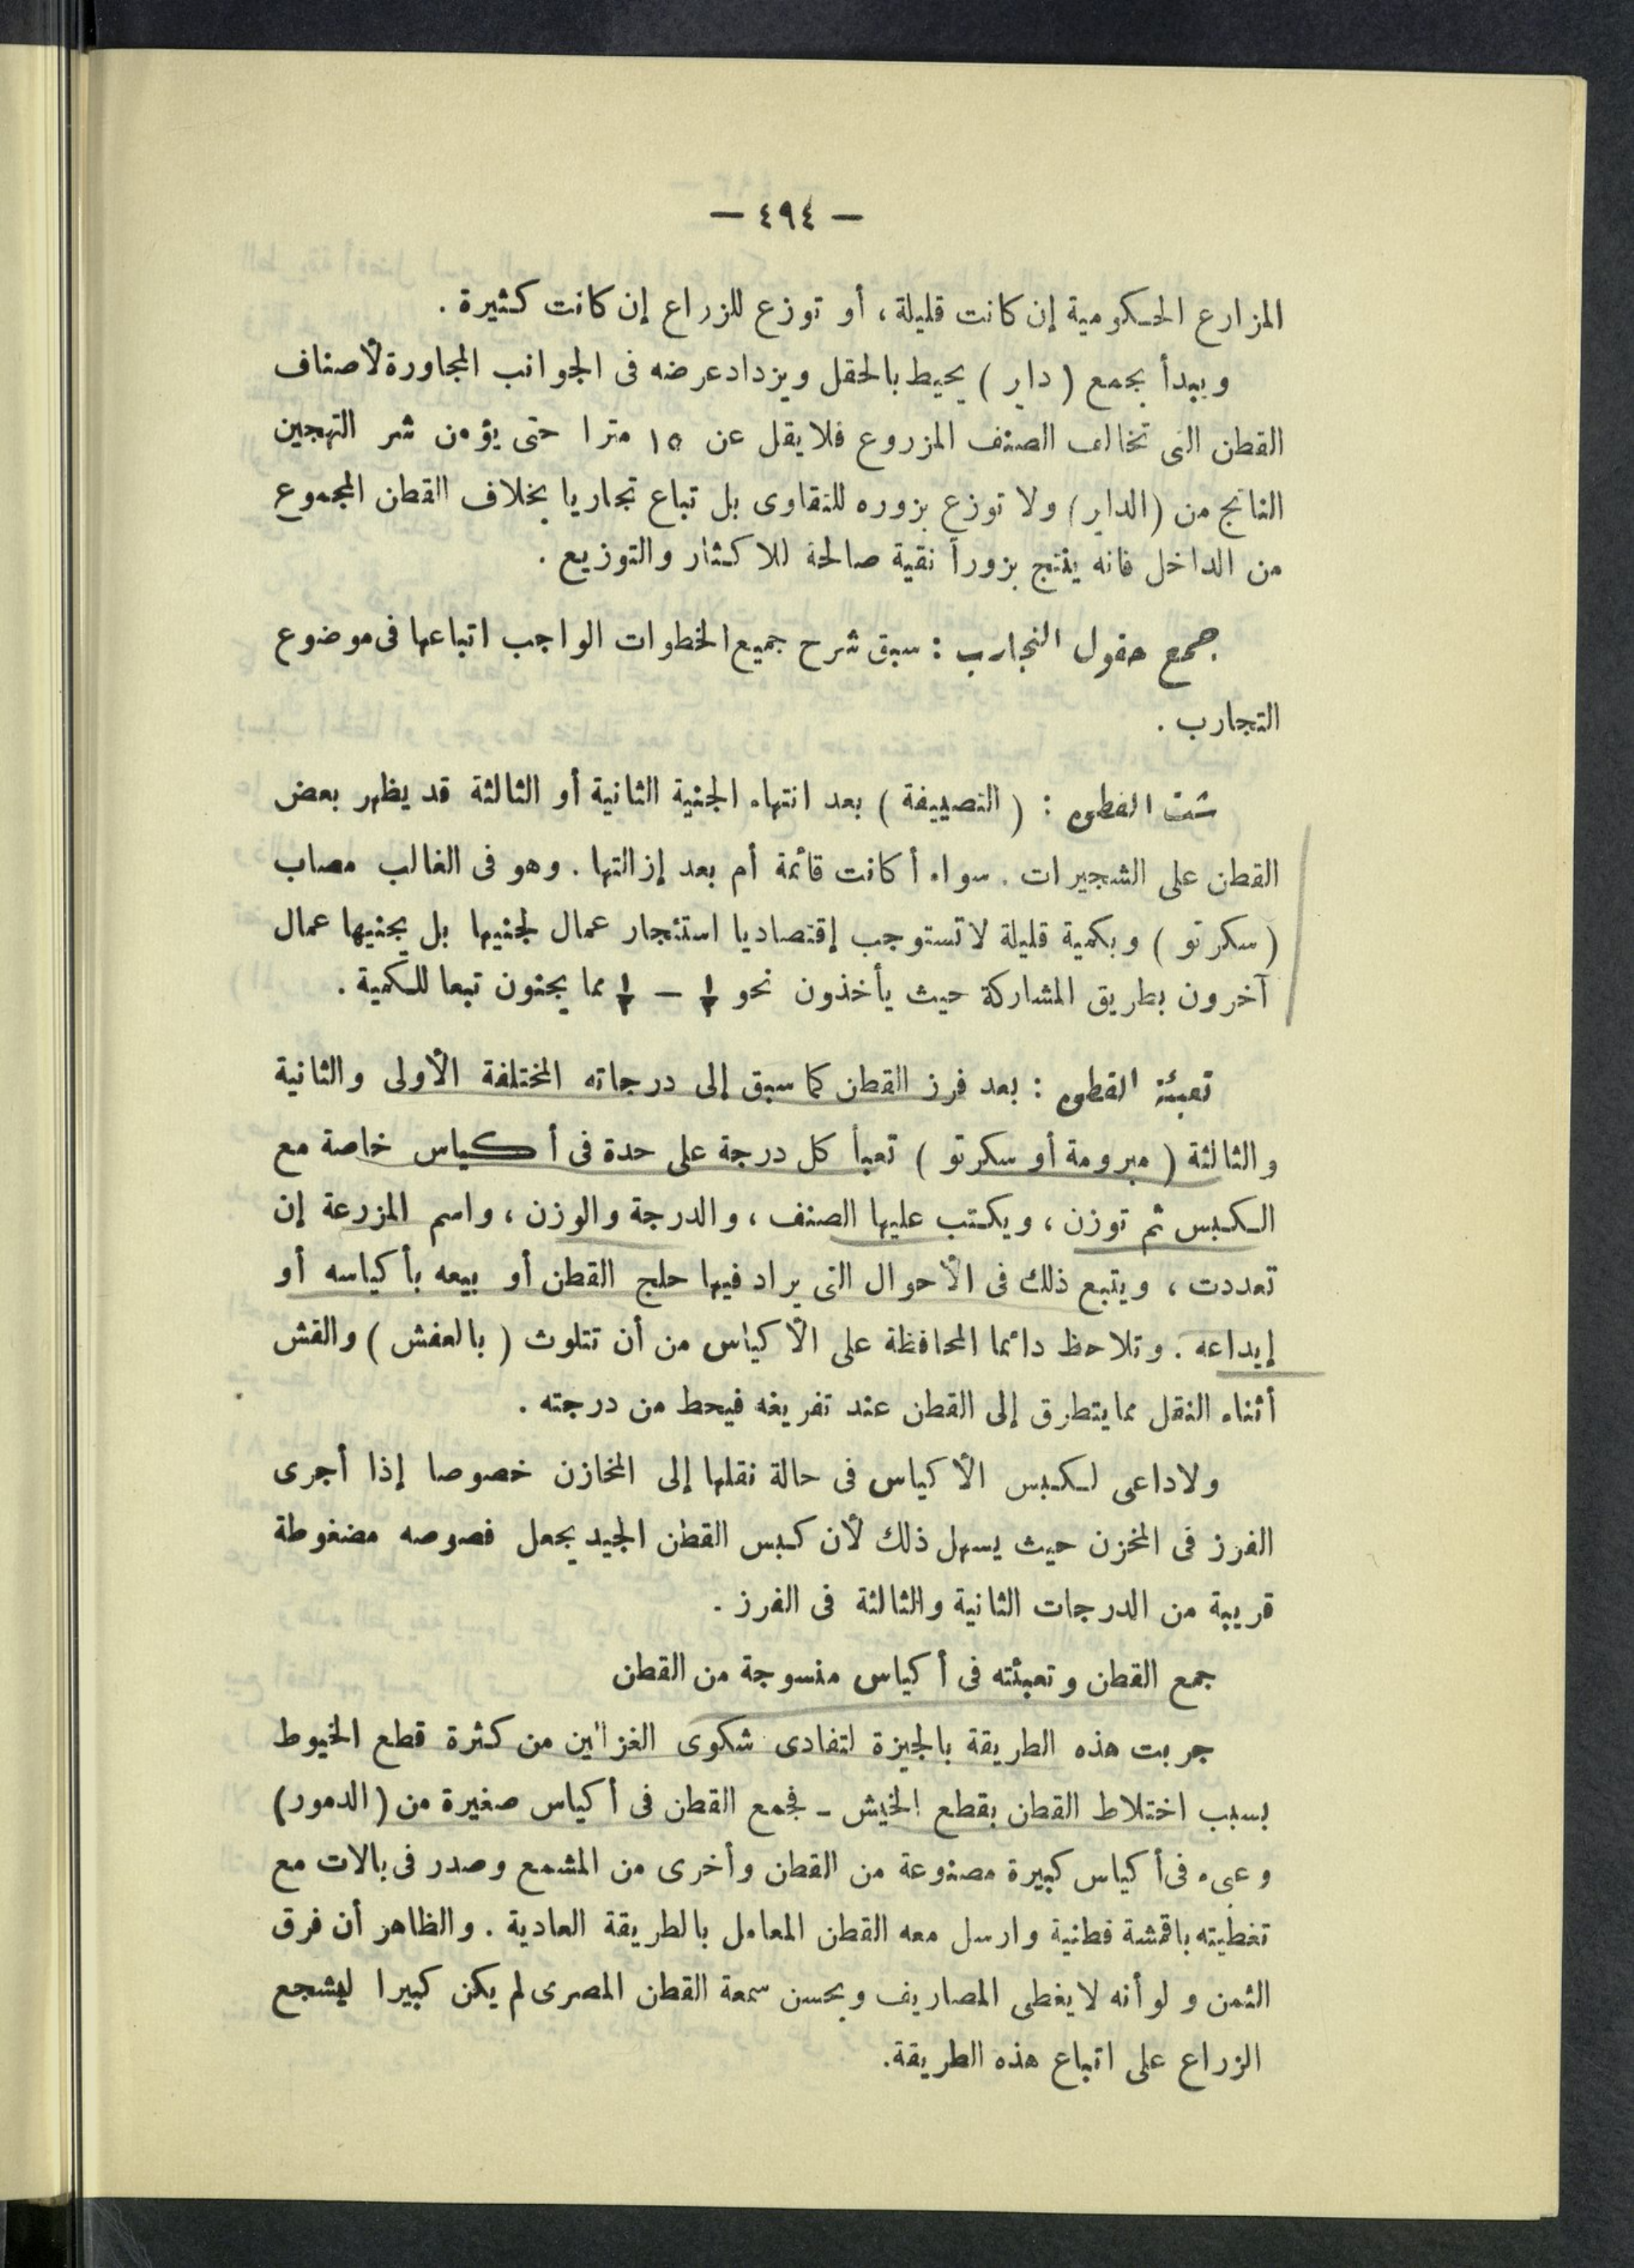 — ٤٩٤ —
المزارع الحكومية إن كانت قليلة، أو توزع للزراع إن كانت كثيرة.
ويبدأ بجمع (داير) يحيط بالحقل ويزداد عرضه فى الجوانب المجاورة لأصناف
القطن التى تخالف الصنف المزروع فلا يقل عن ١٥ مترا حتى يؤمن شر التهجين
الناتج من (الداير) ولا توزع بزوره للتقاوى بل تباع تجاريا بخلاف القطن المجموع
من الداخل فانه ينتج بزوراً نقية صالحة للاكثار والتوزيع.
جمع حقول التجارب : سبق شرح جميع الخطوات الواجب اتباعها فى موضوع
التجارب.
شت القطن : (التصييفة) بعد انتهاء الجنية الثانية أو الثالثة قد يظهر بعض
القطن على الشجيرات. سواء أكانت قائمة أم بعد إزالتها. وهو فى الغالب مصاب
(سكرتو) وبكمية قليلة لا تستوجب إقتصاديا استئجار عمال لجنيها بل يجنيها عمال
آخرون بطريق المشاركة حيث يأخذون نحو — مما يجنون تبعا للكمية.
تعبئة القطن : بعد فرز القطن كما سبق إلى درجاته المختلفة الأولى والثانية
والثالثة (مبرومة أو سكرتو) تعبأ كل درجة على حدة فى أكياس خاصة مع
الكبس ثم توزن، ويكتب عليها الصنف، والدرجة والوزن، واسم المزرعة إن
تعددت، ويتبع ذلك فى الأحوال التى يراد فيها حلج القطن أو بيعه بأكياسه أو
إيداعه. وتلاحظ دائما المحافظة على الأكياس من أن تتلوث (بالعفش) والقش
أثناء النقل مما يتطرق إلى القطن عند تفريغه فيحط من درجته.
ولاداعى لكبس الأكياس فى حالة نقلها إلى المخازن خصوصا إذا أجرى
الفرز فى المخزن حيث يسهل ذلك لأن كبس القطن الجيد يجعل فصوصه مضغوطة
قريبة من الدرجات الثانية والثالثة فى الفرز.
جمع القطن وتعبئته فى أكياس منسوجة من القطن
جربت هذه الطريقة بالجيزة لتفادى شكوى الغزالين من كثرة قطع الخيوط
بسبب اختلاط القطن بقطع الخيش ـ فجمع القطن فى أكياس صغيرة من (الدمور)
وعبىء فى أكياس كبيرة مصنوعة من القطن وأخرى من المشمع وصدر فى بالات مع
تغطيته باقمشة قطنية وارسل معه القطن المعامل بالطريقة العادية. والظاهر أن فرق
الثمن ولو أنه لا يغطى المصاريف ويحسن سمعة القطن المصرى لم يكن كبيرا ليشجع
الزراع على اتباع هذه الطريقة.